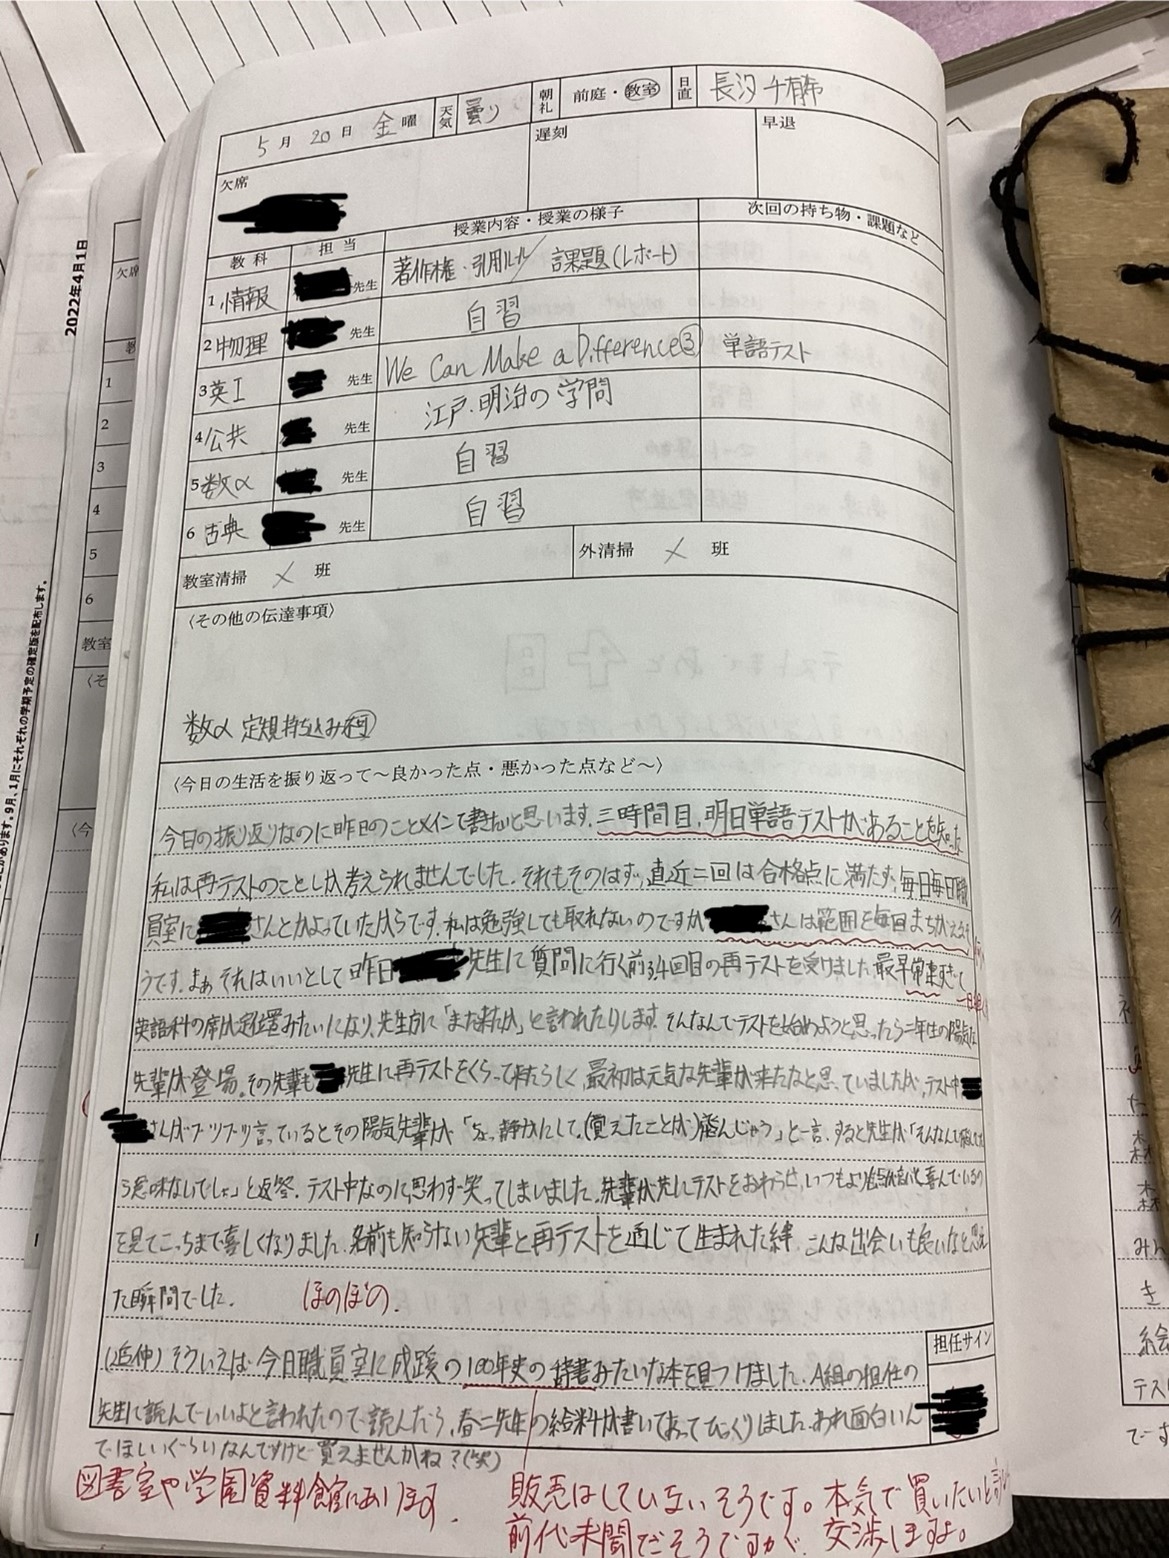 5月20日 金曜 天気 曇り 朝礼 前庭・教室 日直 長汐 千有希
欠席 遅刻 早退
教科 担当 授業内容・授業の様子 次回の持ち物・課題など
1 情報 先生 著作権・引用ルール/課題(レポート)
2 物理 先生 自習
3 英I 先生 We Can Make a Difference③ 単語テスト
4 公共 先生 江戸・明治の学問
5 数α 先生 自習
6 古典 先生 自習
教室清掃 × 班 外清掃 × 班
〈その他の伝達事項〉
数α 定規持ち込み可
〈今日の生活を振り返って～良かった点・悪かった点など～〉
今日の振り返りなのに昨日のことメインで書きたいと思います。三時間目、明日単語テストがあることを知った
私は再テストのことしか考えられませんでした。それもそのはず、直近二回は合格点に満たず、毎日毎日職
員室に さんとかよっていたからです。私は勉強しても取れないのですが さんは範囲を毎回まちがえるそ
うです。まぁそれはいいとして昨日 先生に質問に行く前3,4回目の再テストを受けました。最早常連すぎて
英語科の席が定位置みたいになり、先生方に「また来たか」と言われたりします。そんなんでテストを始めようと思ったら二年生の陽気な
先輩が登場。その先輩も 先生に再テストをくらって来たらしく、最初は元気な先輩が来たなと思っていましたが、テスト中
さんがブツブツ言っているとその陽気先輩が「ちょっ静かにして。(覚えたことが)飛んじゃう」と一言。すると先生が「そんなんで飛んでた
ら意味ないでしょ」と返答。テスト中なのに思わず笑ってしまいました。先輩が先にテストをおわらせ、いつもより点数が高いと喜んでいるの
を見てこっちまで嬉しくなりました。名前も知らない先輩と再テストを通じて生まれた絆。こんな出会いも良いなと思え
た瞬間でした。 ほのぼの。
(追伸)そういえば今日職員室に成蹊の100年史の辞書みたいな本を見つけました。A組の担任の
先生に読んでいいよと言われたので読んだら、春二先生の給料が書いてあってびっくりしました。あれ面白いん
でほしいくらいなんですけど買えませんかね?(笑)
担任サイン
図書室や学園資料館にあります。
販売はしていないそうです。本気で買いたいと
前代未聞だそうですが、交渉しますよ。
2022年4月1日
があります。9月、1月にそれぞれの学期予定の確定版を配布します。
欠席
1
2
3
4
5
6
教室